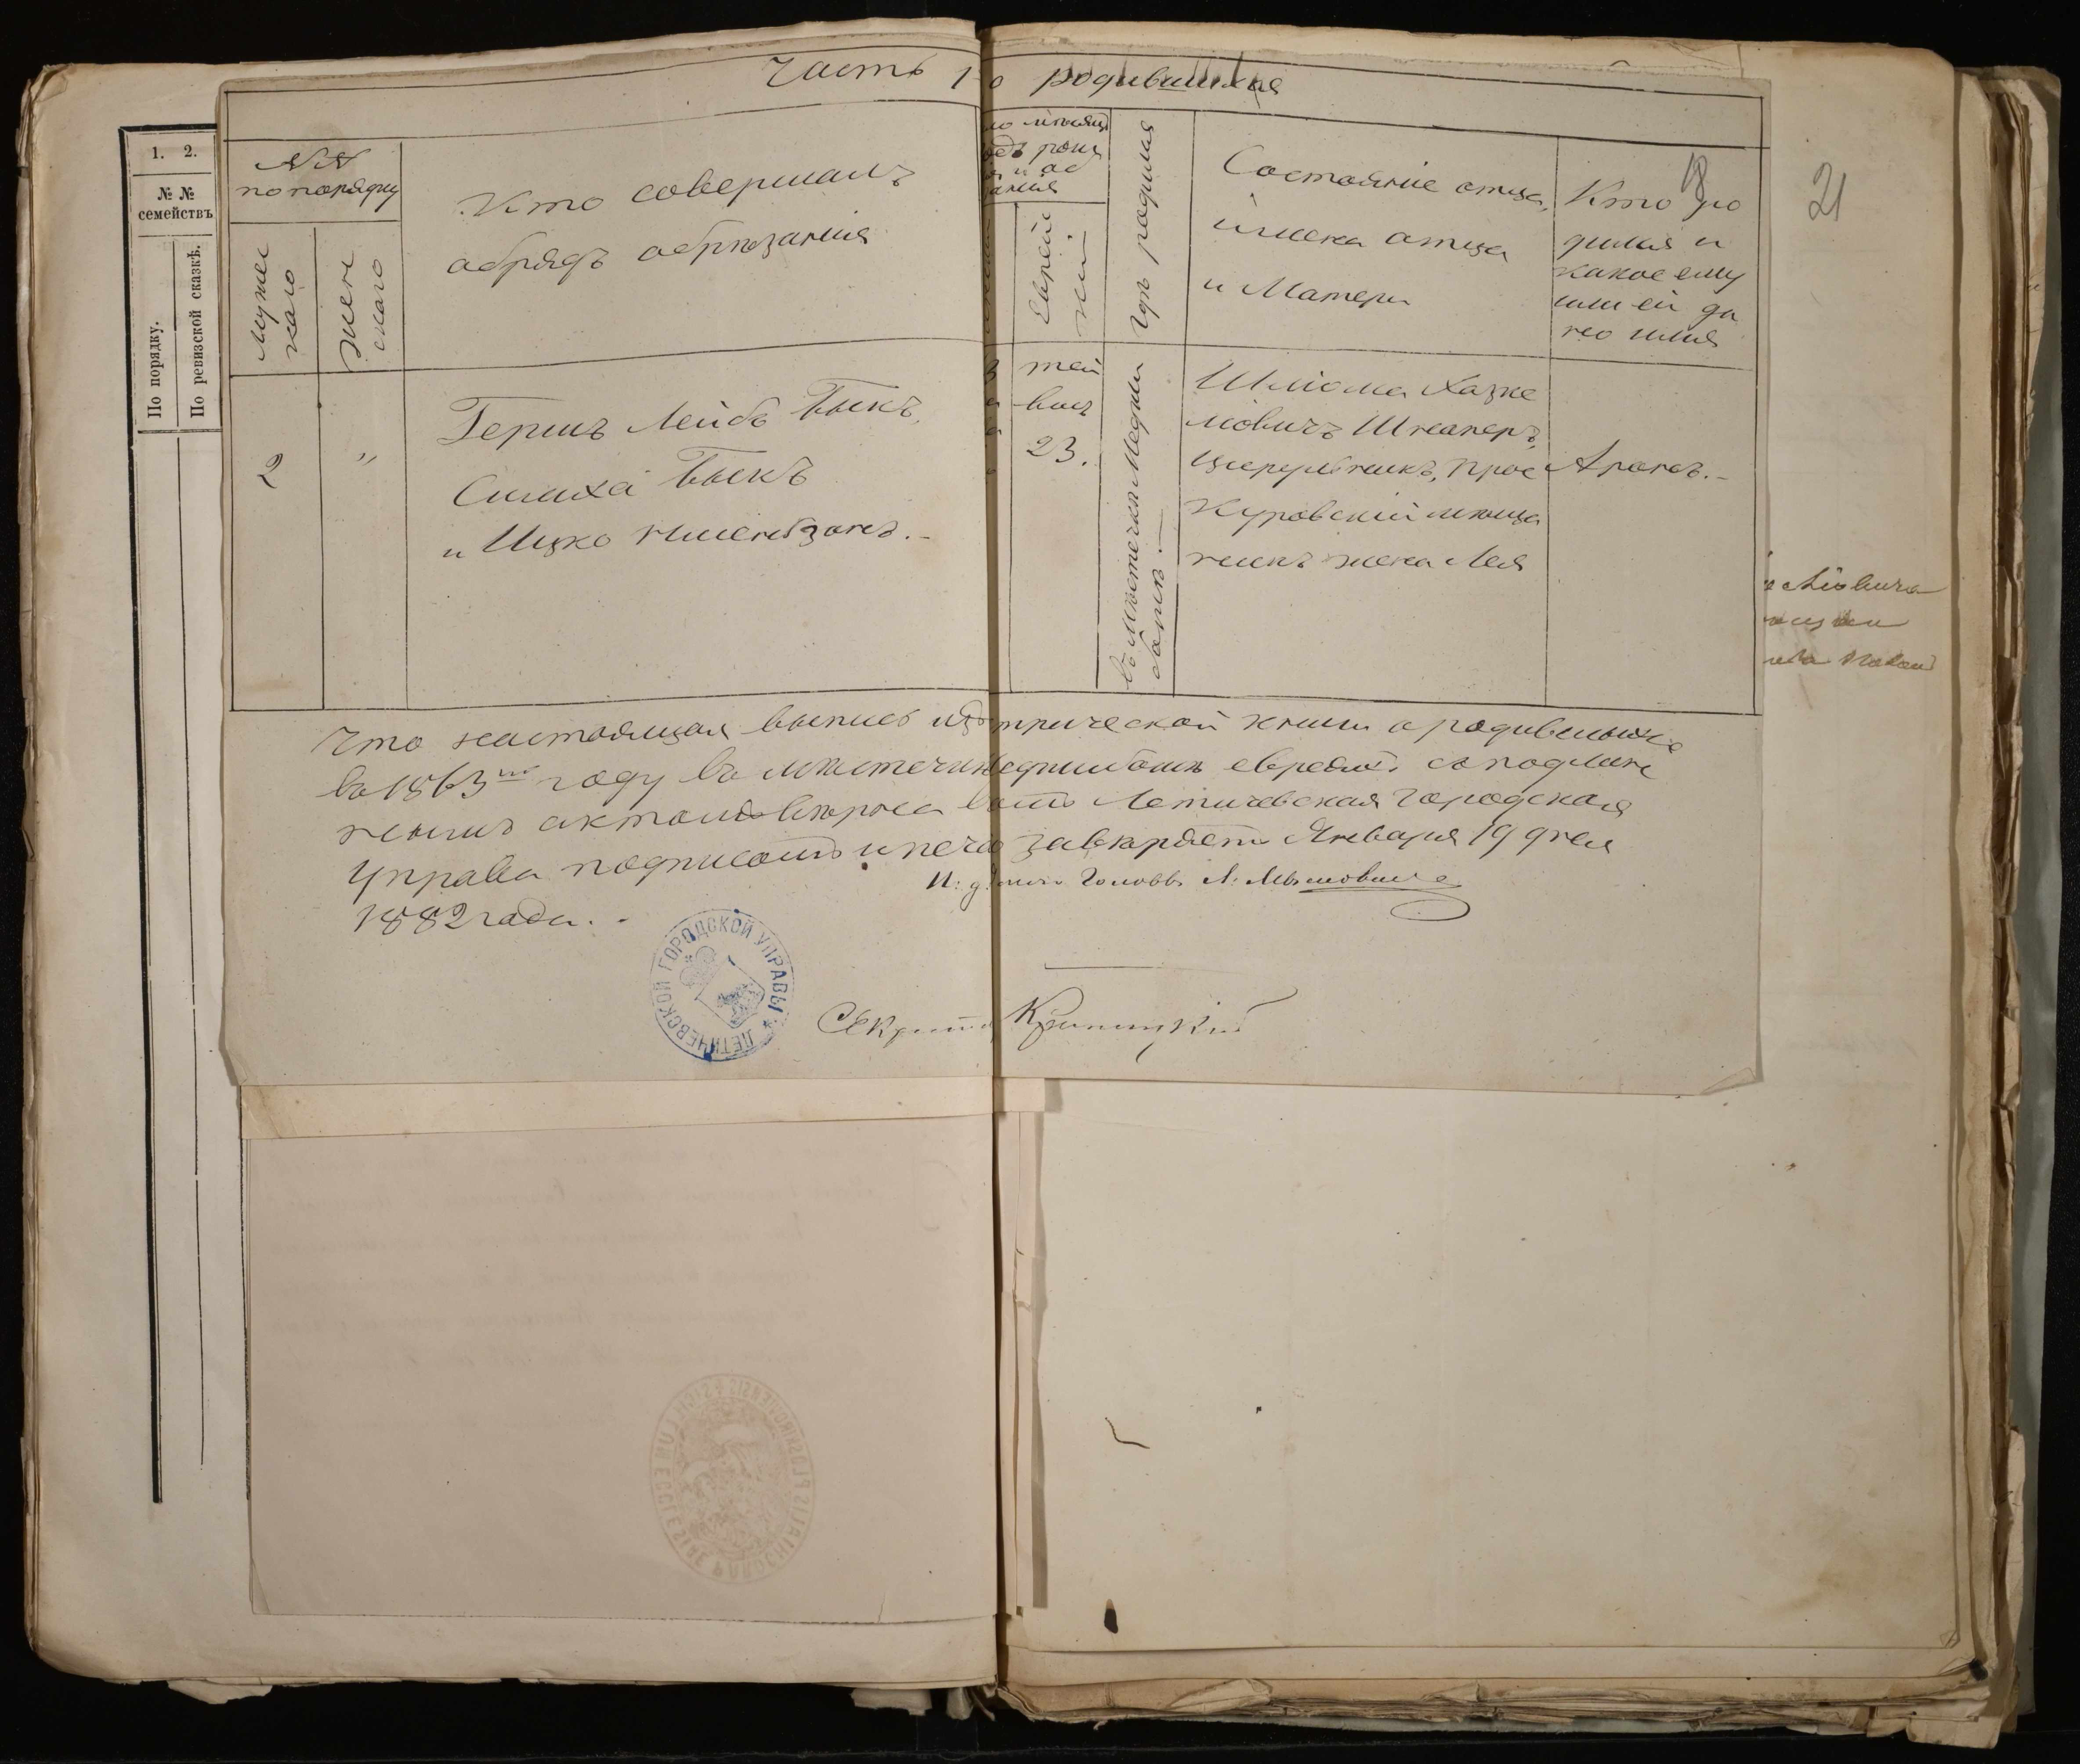 Часть 1 о родившихся
1. 2.
№ №
семействъ
По порядку.
По ревизской сказкѣ.
№№
по порядку
Мужес
каго
Женс
скаго
Кто совершалъ
обрядъ обрѣзанія
Еврей
скій
Гдѣ родился
Состояніе отца,
имена отца
и Матери
18
Кто ро
дился и
какое ему
или ей да
но имя
21
2
"
Гершъ Лейбъ Быкъ,
Симха Быкъ
и Ицко
тей
вия
23.
въ Мѣстечкѣ Меджи
божѣ.
Шліома Хазке
ліовичъ
Цырульникъ, Прос
куровскій мѣща
нинъ жена Лея
Аронъ.-
Что настоящая выпись из трической книги о родившихся
въ 1863мъ году въ мѣстечк еджибожѣ евреяхъ съ подлин
нымъ актомъ вѣрна въ томъ Летичевская Городская
Управа подписомъ и печа завѣряетъ Января 19 дня
1882 года. -
И: д: Голова
ЛЕТИЧЕВСКОЙ ГОРОДСКОЙ УПРАВЫ
Секрета Криницкій